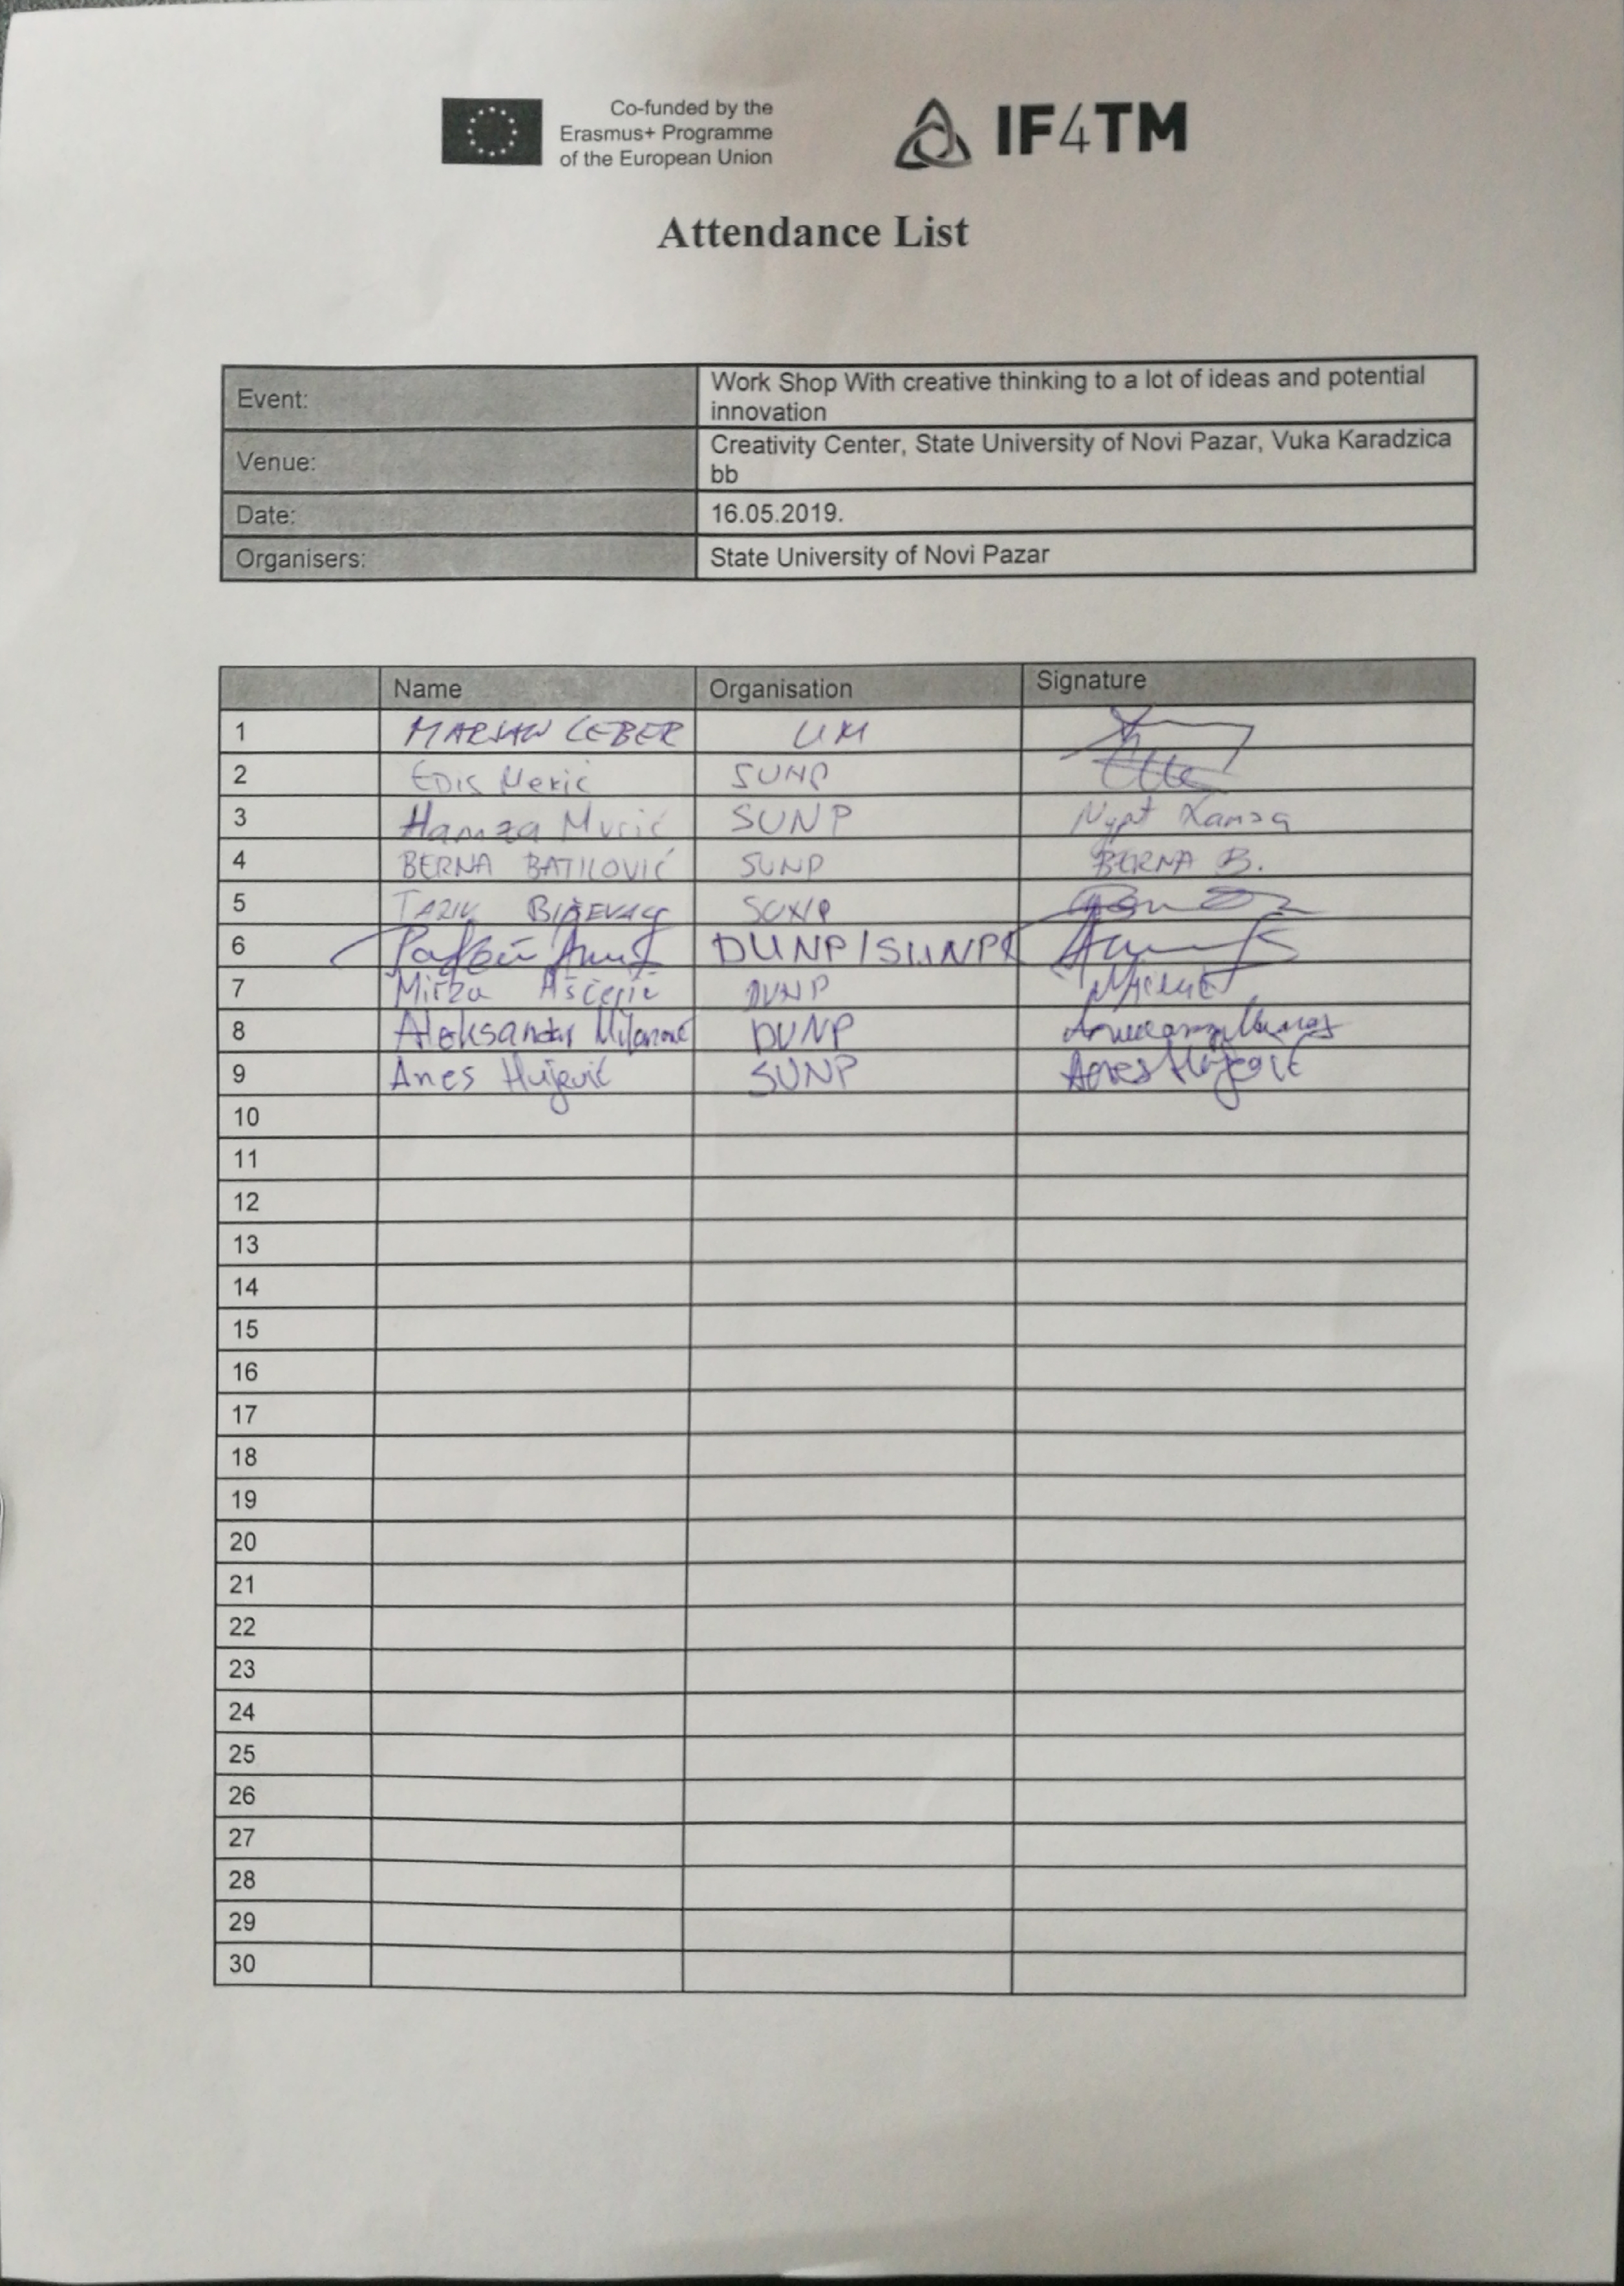 Co-funded by the
Erasmus+ Programme
of the European Union
IF4TM
Attendance List
Event: Work Shop With creative thinking to a lot of ideas and potential
innovation
Venue: Creativity Center, State University of Novi Pazar, Vuka Karadzica
bb
Date: 16.05.2019.
Organisers: State University of Novi Pazar
Name Organisation Signature
1 MARJAN LEBER UM
2 EDIS Mekić SUNP
3 Hamza Murić SUNP
4 BERNA BATILOVIĆ SUNP BERNA B.
5 SUNP
6 DUNP/SUNP
7 Mirza DUNP
8 Aleksandar DUNP
9 Anes SUNP Anes
10
11
12
13
14
15
16
17
18
19
20
21
22
23
24
25
26
27
28
29
30